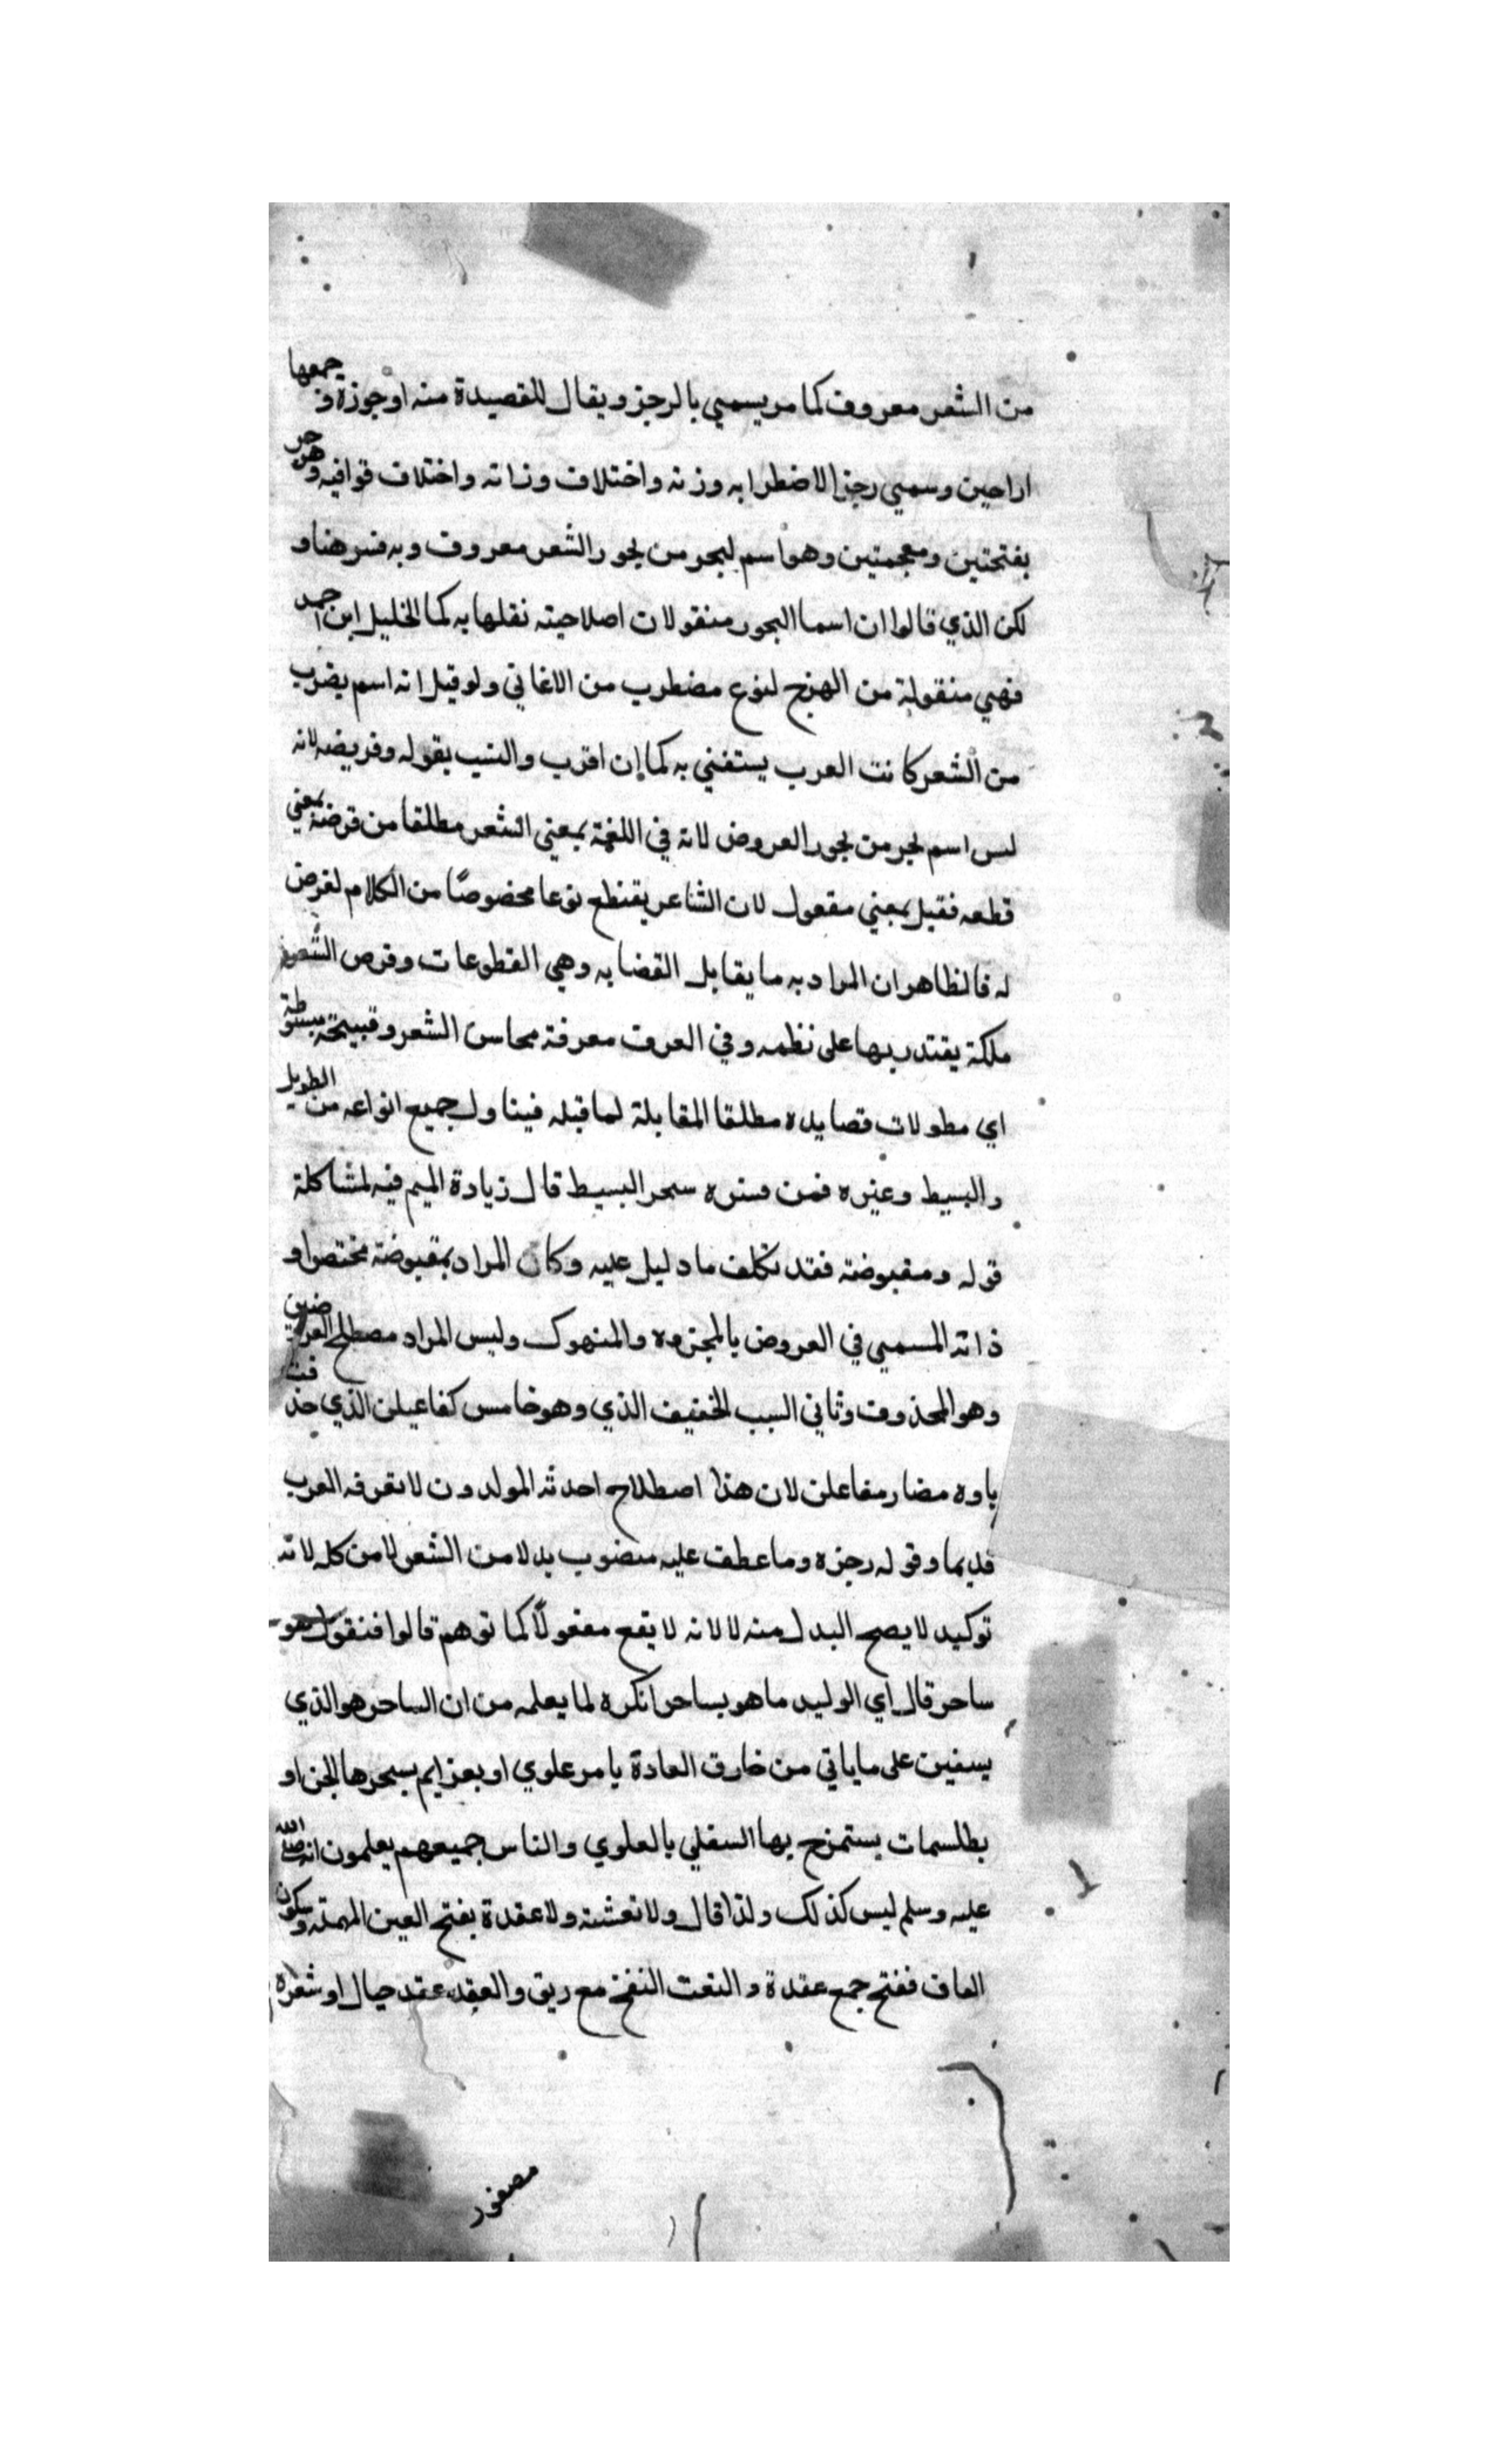 من الشعر معروف كما مر يسمي بالرجز ويقال للقصيدة منه اوجوزة و جمعها
اراجيز وسمي رجز الاضطرابه وزنه واختلاف وزانه واختلاف قوافيه وهزجر
بفتحتين ومعجمتين وهو اسم لبحر من بحور الشعر معروف وبه فسر هنا و
لكن الذي قالوا ان اسما البحور منقولات اصلاحيته نقلها به كما الخليل ابن احمد
فهي منقولة من الهزج لنوع مضطرب من الاغاني ولو قيل انه اسم يضرب
من الشعر كانت العرب يستغني به كما ان اقرب والنسب بقوله وقريضه لانه
ليس اسم لبحر من بحور العروض لانه في اللغة بمعني الشعر مطلقا من قرضه بمعني
قطعه فقيل بمعني مفعول لان الشاعر يقتطع نوعا مخصوصًا من الكلام لغرض
له فالظاهر ان المراد به ما يقابل القضايه وهي القطوعات وقرض الشعر
ملكة يقتدر بها على نظمه وفي العرف معرفة محاسن الشعر وقبيحه مبسوطة
اي مطولات قصايده مطلقا المقابلة لما قبله فيناول جميع انواعه من الطويل
والبسيط وغيره فمن فسره سحر البسيط قال زيادة الميم فيه لمشاكلة
قوله ومقبوضته فقد تكلف ما دليل عليه وكان المراد بمقبوضة مختصرا و
ذاته المسمي في العروض بالمجزوه والمنهوك وليس المراد مصطلح العروضين
وهو المحذوف وثاني السبب الخفيف الذي وهو خامس كفاعيلن الذي حذفت
ياوه مضار مفاعلن لان هذا اصطلاح احدثه المولدون لا تعرفه العرب
قديما وقوله رجزه وما عطف عليه منصوب بدلا من الشعر لا من كله لانه
توكيد لا يصح البدل منه لا لانه لا يقع مفعولًا كما توهم قالوا فنقول هو
ساحر قال اي الوليد ما هو بساحر انكره لما يعلمه من ان الساحر هو الذي
يسفين على ما ياتي من خارق العادة بامر علوي او بعزايم يسحرها الجن او
بطلسمات يستمزج بها السفلي بالعلوي والناس جميعهم يعلمون انه صلى الله
عليه وسلم ليس كذلك ولذا قال ولا نعشه ولا عقدة بفتح العين المهمله وسكون
القاف ففتح جمع عقدة والنعت النفخ مع ريق والعقد عقد حبال او شعره
مصفور